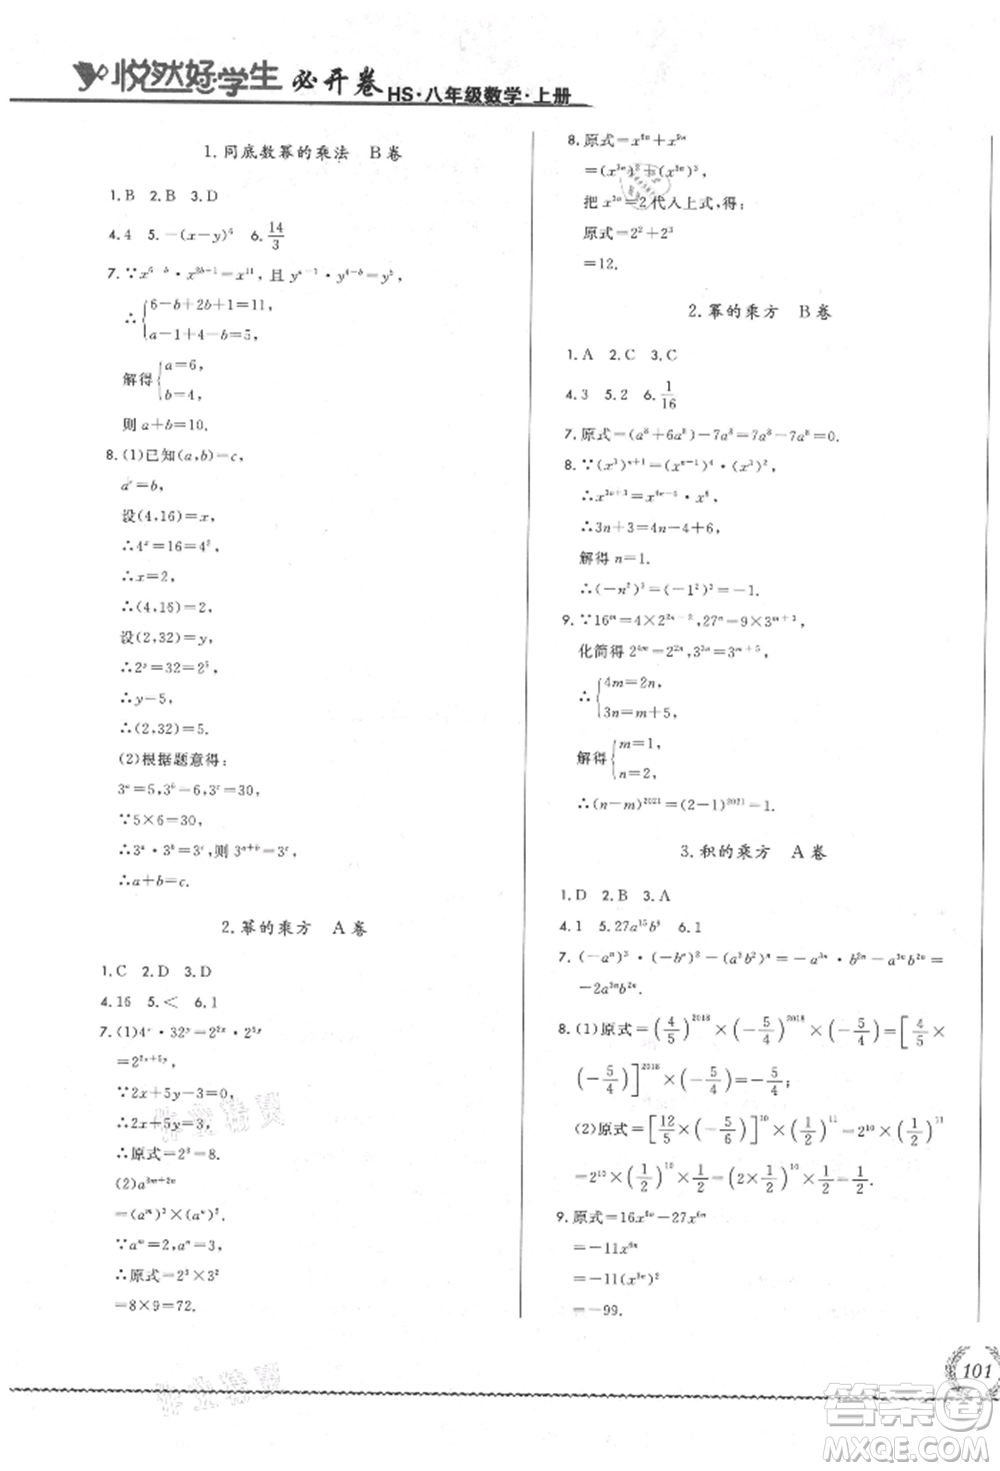 悦然好学生 必开卷 HS·八年级数学·上册
1.同底数幂的乘法 B卷
1.B 2.B 3.D
4.4 5.-(x-y)⁶ 6.14/3
7.∵x^(6-b)·x^(2b+1)=x¹¹,且 y^(a-1)·y^(4-b)=y⁵,
∴{6-b+2b+1=11,
a-1+4-b=5,
解得{a=6,
b=4,
则 a+b=10.
8.(1)已知(a,b)=c,
aᶜ=b,
设(4,16)=x,
∴4ˣ=16=4²,
∴x=2,
∴(4,16)=2,
设(2,32)=y,
∴2ʸ=32=2⁵,
∴y=5,
∴(2,32)=5.
(2)根据题意得:
3ᵃ=5,3ᵇ=6,3ᶜ=30,
∵5×6=30,
∴3ᵃ·3ᵇ=3ᶜ,则 3^(a+b)=3ᶜ,
∴a+b=c.
2.幂的乘方 A卷
1.C 2.D 3.D
4.16 5.< 6.1
7.(1)4ˣ·32ʸ=2^(2x)·2^(5y)
=2^(2x+5y),
∵2x+5y-3=0,
∴2x+5y=3,
∴原式=2³=8.
(2)a^(3m+2n)
=(aᵐ)³×(aⁿ)².
∵aᵐ=2,aⁿ=3,
∴原式=2³×3²
=8×9=72.
8.原式=x^(6n)+x^(9n)
=(x^(3n))²+(x^(3n))³,
把 x^(3n)=2代入上式,得:
原式=2²+2³
=12.
2.幂的乘方 B卷
1.A 2.C 3.C
4.3 5.2 6.1/16
7.原式=(a⁸+6a⁸)-7a⁸=7a⁸-7a⁸=0.
8.∵(x³)^(n+1)=(x^(n-1))⁴·(x³)²,
∴x^(3n+3)=x^(4n-4)·x⁶,
∴3n+3=4n-4+6,
解得 n=1.
∴(-n²)³=(-1²)³=-1.
9.∵16ᵐ=4×2^(2n-2),27ⁿ=9×3^(m+3),
化简得 2^(4m)=2^(2n),3^(3n)=3^(m+5),
∴{4m=2n,
3n=m+5,
解得{m=1,
n=2,
∴(n-m)²⁰²¹=(2-1)²⁰²¹=1.
3.积的乘方 A卷
1.D 2.B 3.A
4.1 5.27a¹⁵b⁹ 6.1
7.(-aⁿ)³·(-bⁿ)²-a^(3n)b^(2n)=-a^(3n)·b^(2n)-a^(3n)b^(2n)
=-2a^(3n)b^(2n).
8.(1)原式=(4/5)²⁰¹⁸×(-5/4)²⁰¹⁸×(-5/4)=[4/5×
(-5/4)]²⁰¹⁸×(-5/4)=-5/4;
(2)原式=[12/5×(-5/6)]¹⁰×(1/2)¹⁰×(1/2)=2¹⁰×(1/2)¹¹
=2¹⁰×(1/2)¹⁰×1/2=(2×1/2)¹⁰×1/2=1/2.
9.原式=16x^(6n)-27x^(6n)
=-11x^(6n)
=-11(x^(3n))²
=-99.
101
答案圈
MXQE.COM